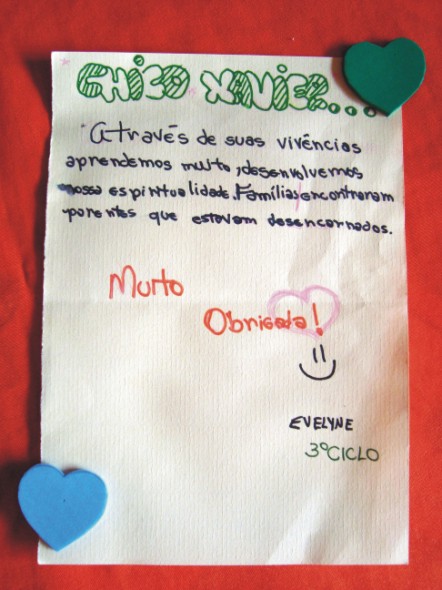 CHICO XAVIER...
Através de suas vivências
aprendemos muito, desenvolvemos
nossa espiritualidade. Famílias encontraram
parentes que estavam desencarnados.
Muito
Obrigada!
EVELYNE
3º CICLO